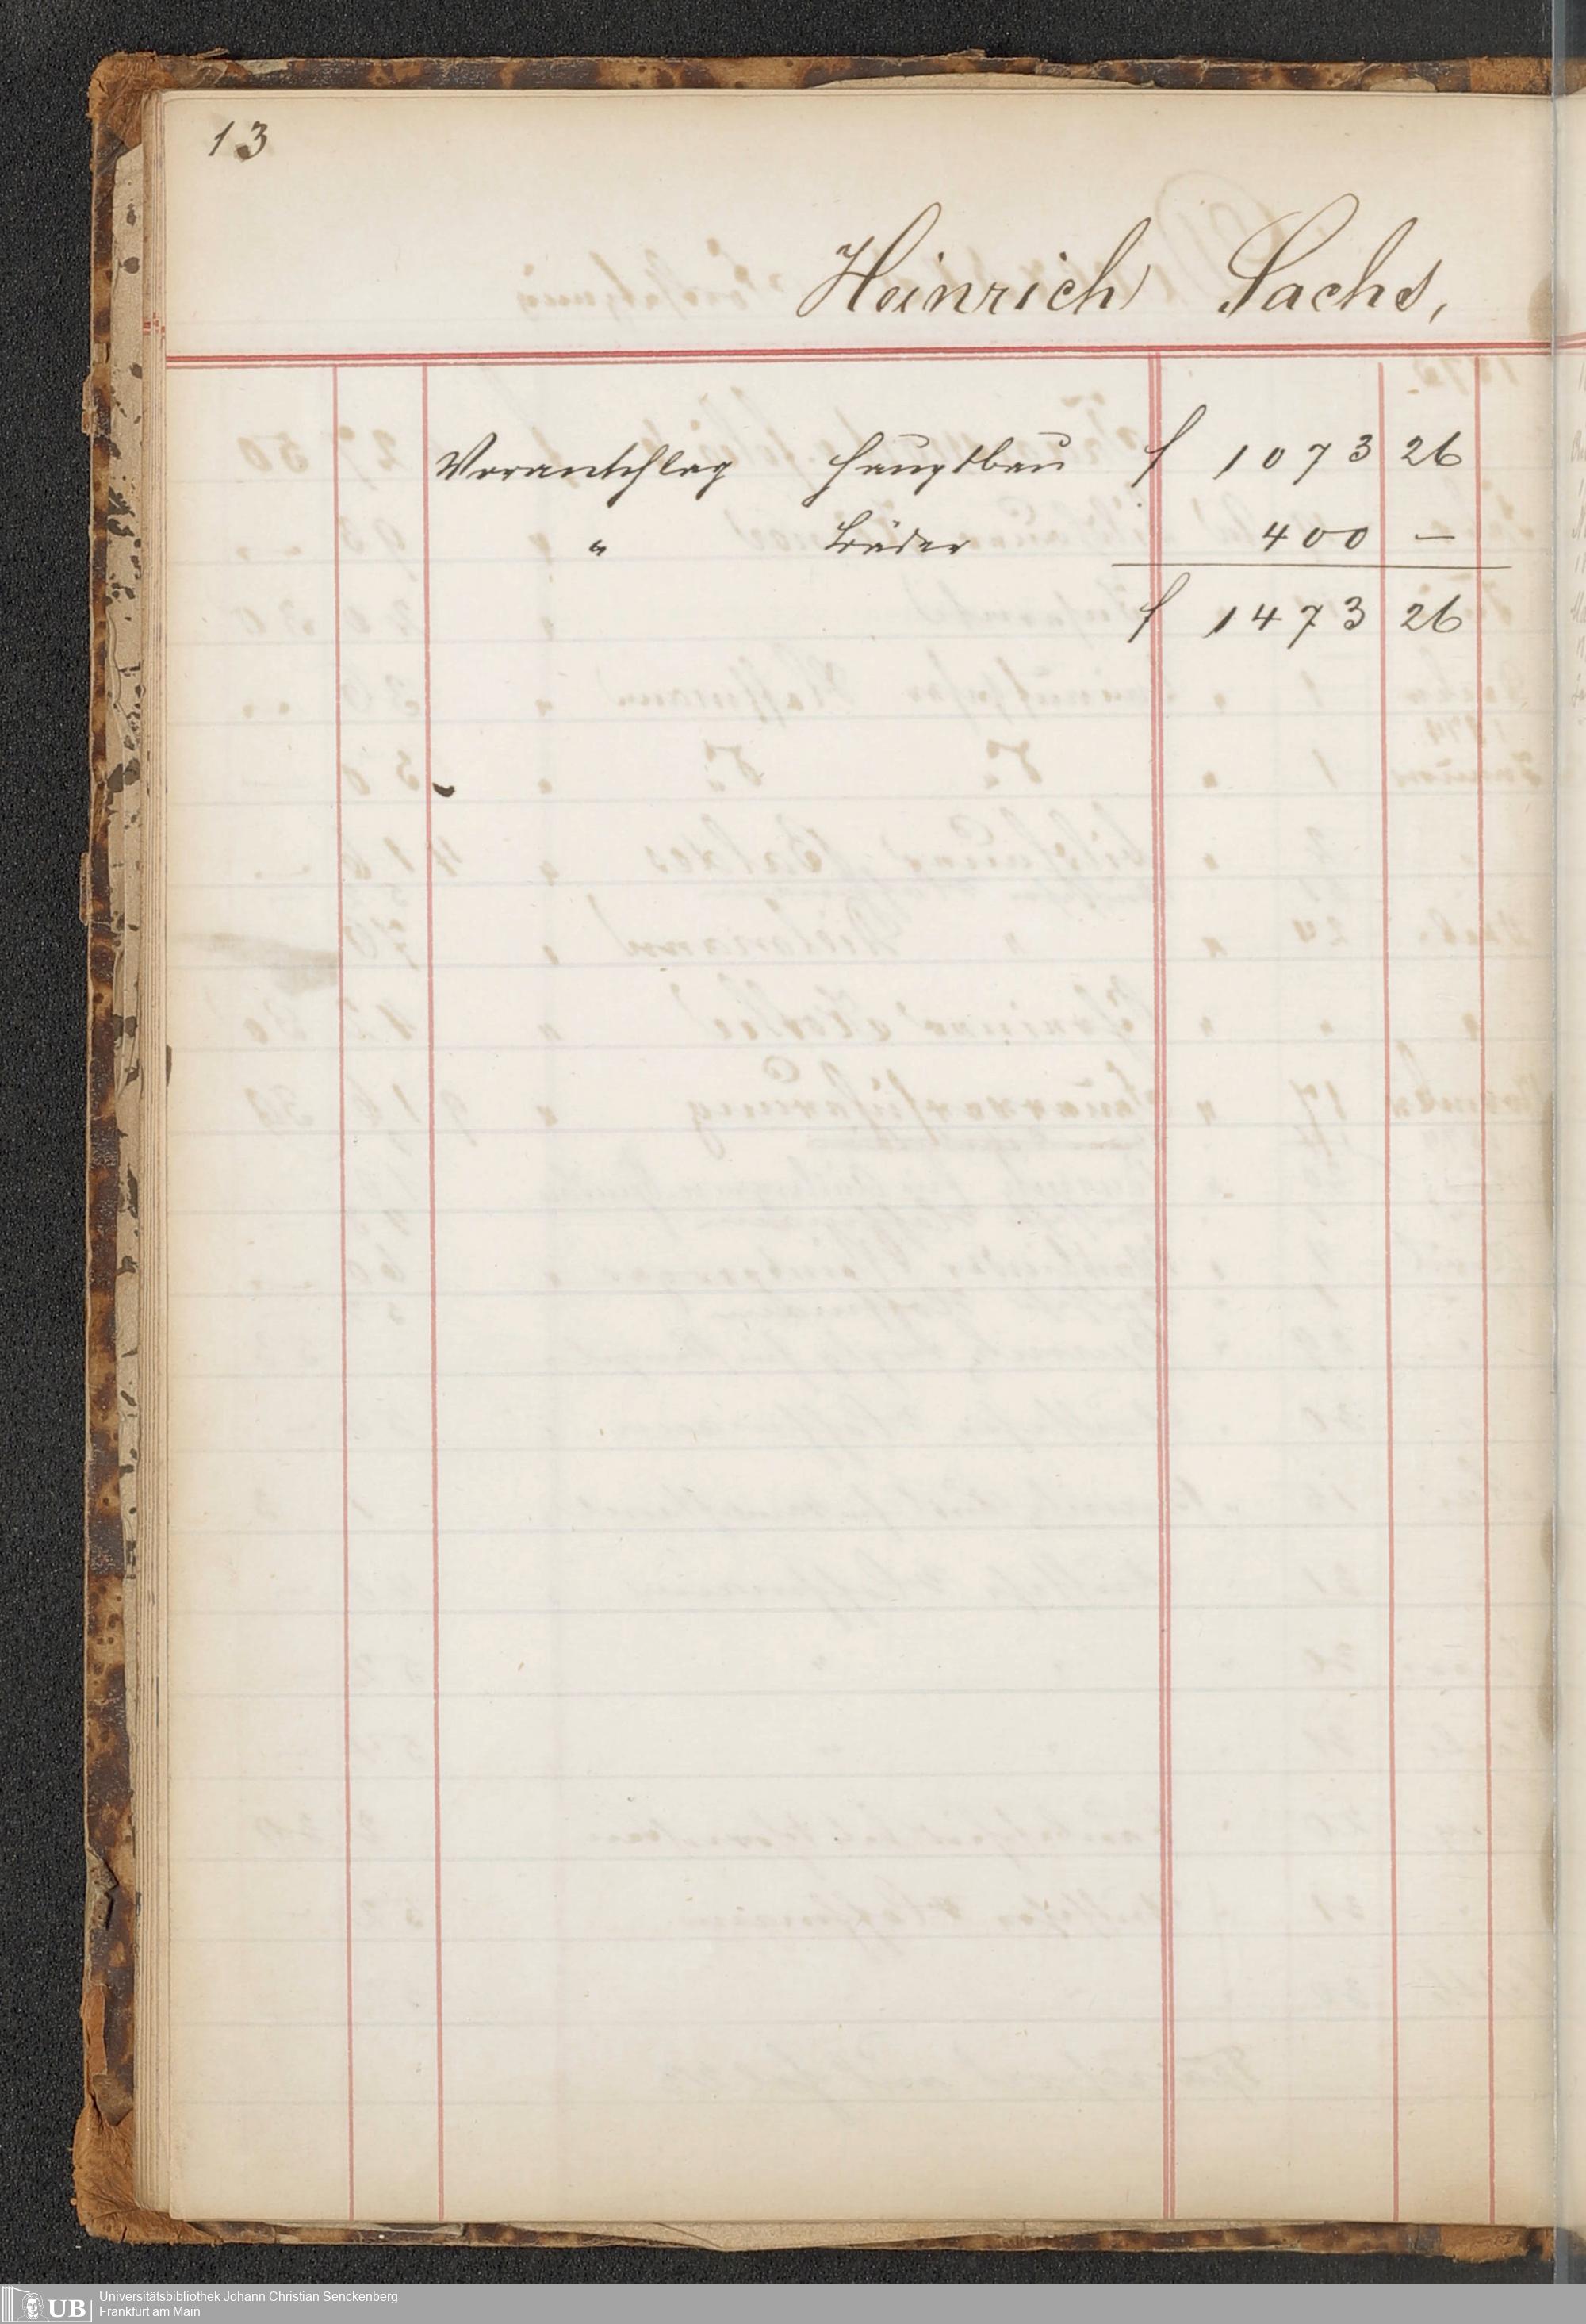 13
Heinrich Sachs,
Voranschlag Hauptbau f 1073 26
" Bäder 400 —
f 1473 26
UB Universitätsbibliothek Johann Christian Senckenberg
Frankfurt am Main